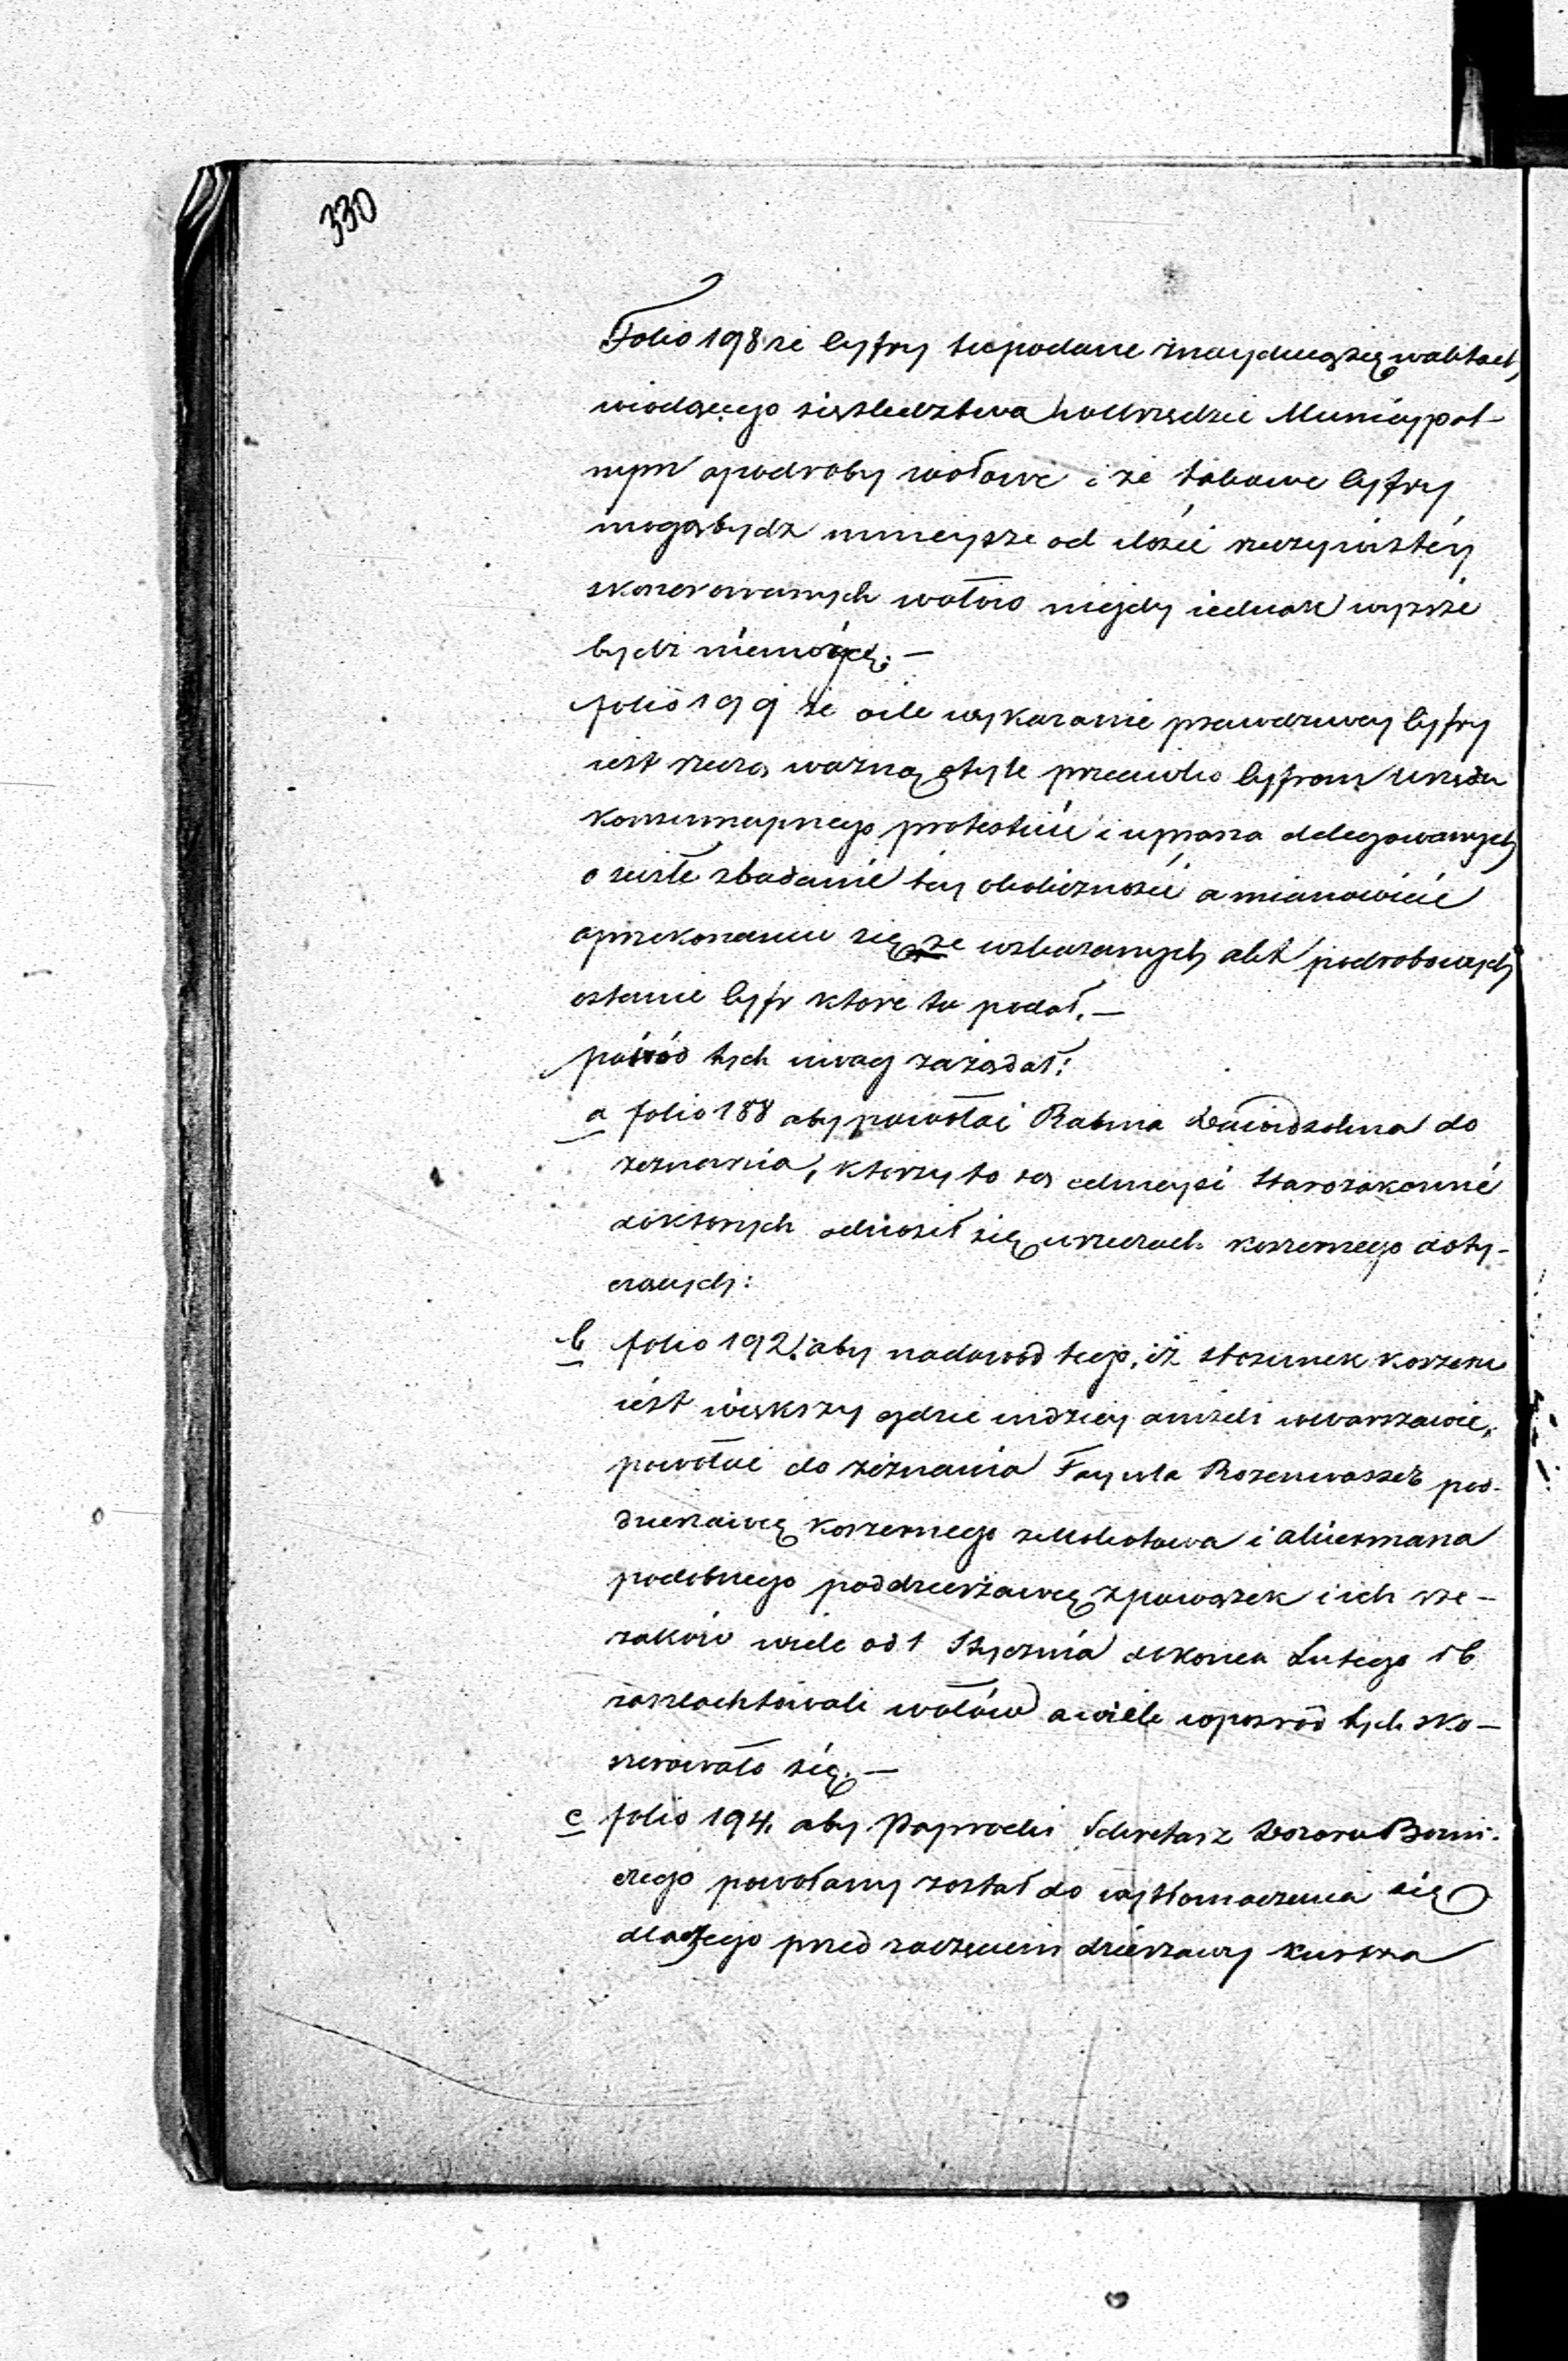 330
Folio 198 że cyfry tu podane znayduią się w aktach
wiodącego się śledztwa w Urzędzie Municypal-
nym o podroby wołowe i że takowe cyfry
mogą bydź mnieysze od ilości rzeczywistéy
skoszerowanych wołów nigdy iednak wyższe
bydź niemogą. —
folio 199 że o ile wykazanie prawdziwey cyfry
iest rzeczą ważną o tyle przeciwko cyfrom Urzędu
konsumcyinego protestuie i uprasza delegowanych
o ścisłe zbadanie téy okoliczności a mianowicie
o przekonanie się ze wskazanych akt podrobowych
o stanie cyfr które tu podał. —
pośród tych uwag zażądał:
a folio 188 aby powołać Rabina Dawidsohna do
zeznania, którzy to są celnieysi Starozakonni
do których odnosił się w rzeczach koszernego doty-
czących:
b folio 192. aby na dowód tego, iż stosunek koszeru
iest większy gdzie indziey aniżeli w Warszawie,
powołać do zeznania Faywla Rozenwasser pod-
dzierżawcę koszernego z Mokotowa i Akiermana
podobnego poddzierżawcę z Powązek i ich rze-
zaków wiele od 1 Stycznia do końca Lutego r b
zaszlachtowali wołów a wiele wpośród tych sko-
szerowało się. —
c folio 194. aby Paprocki Sekretarz Dozoru Bożni-
czego powołany został do wytłomaczenia się
dlaczego przed zaczęciem dzierżawy